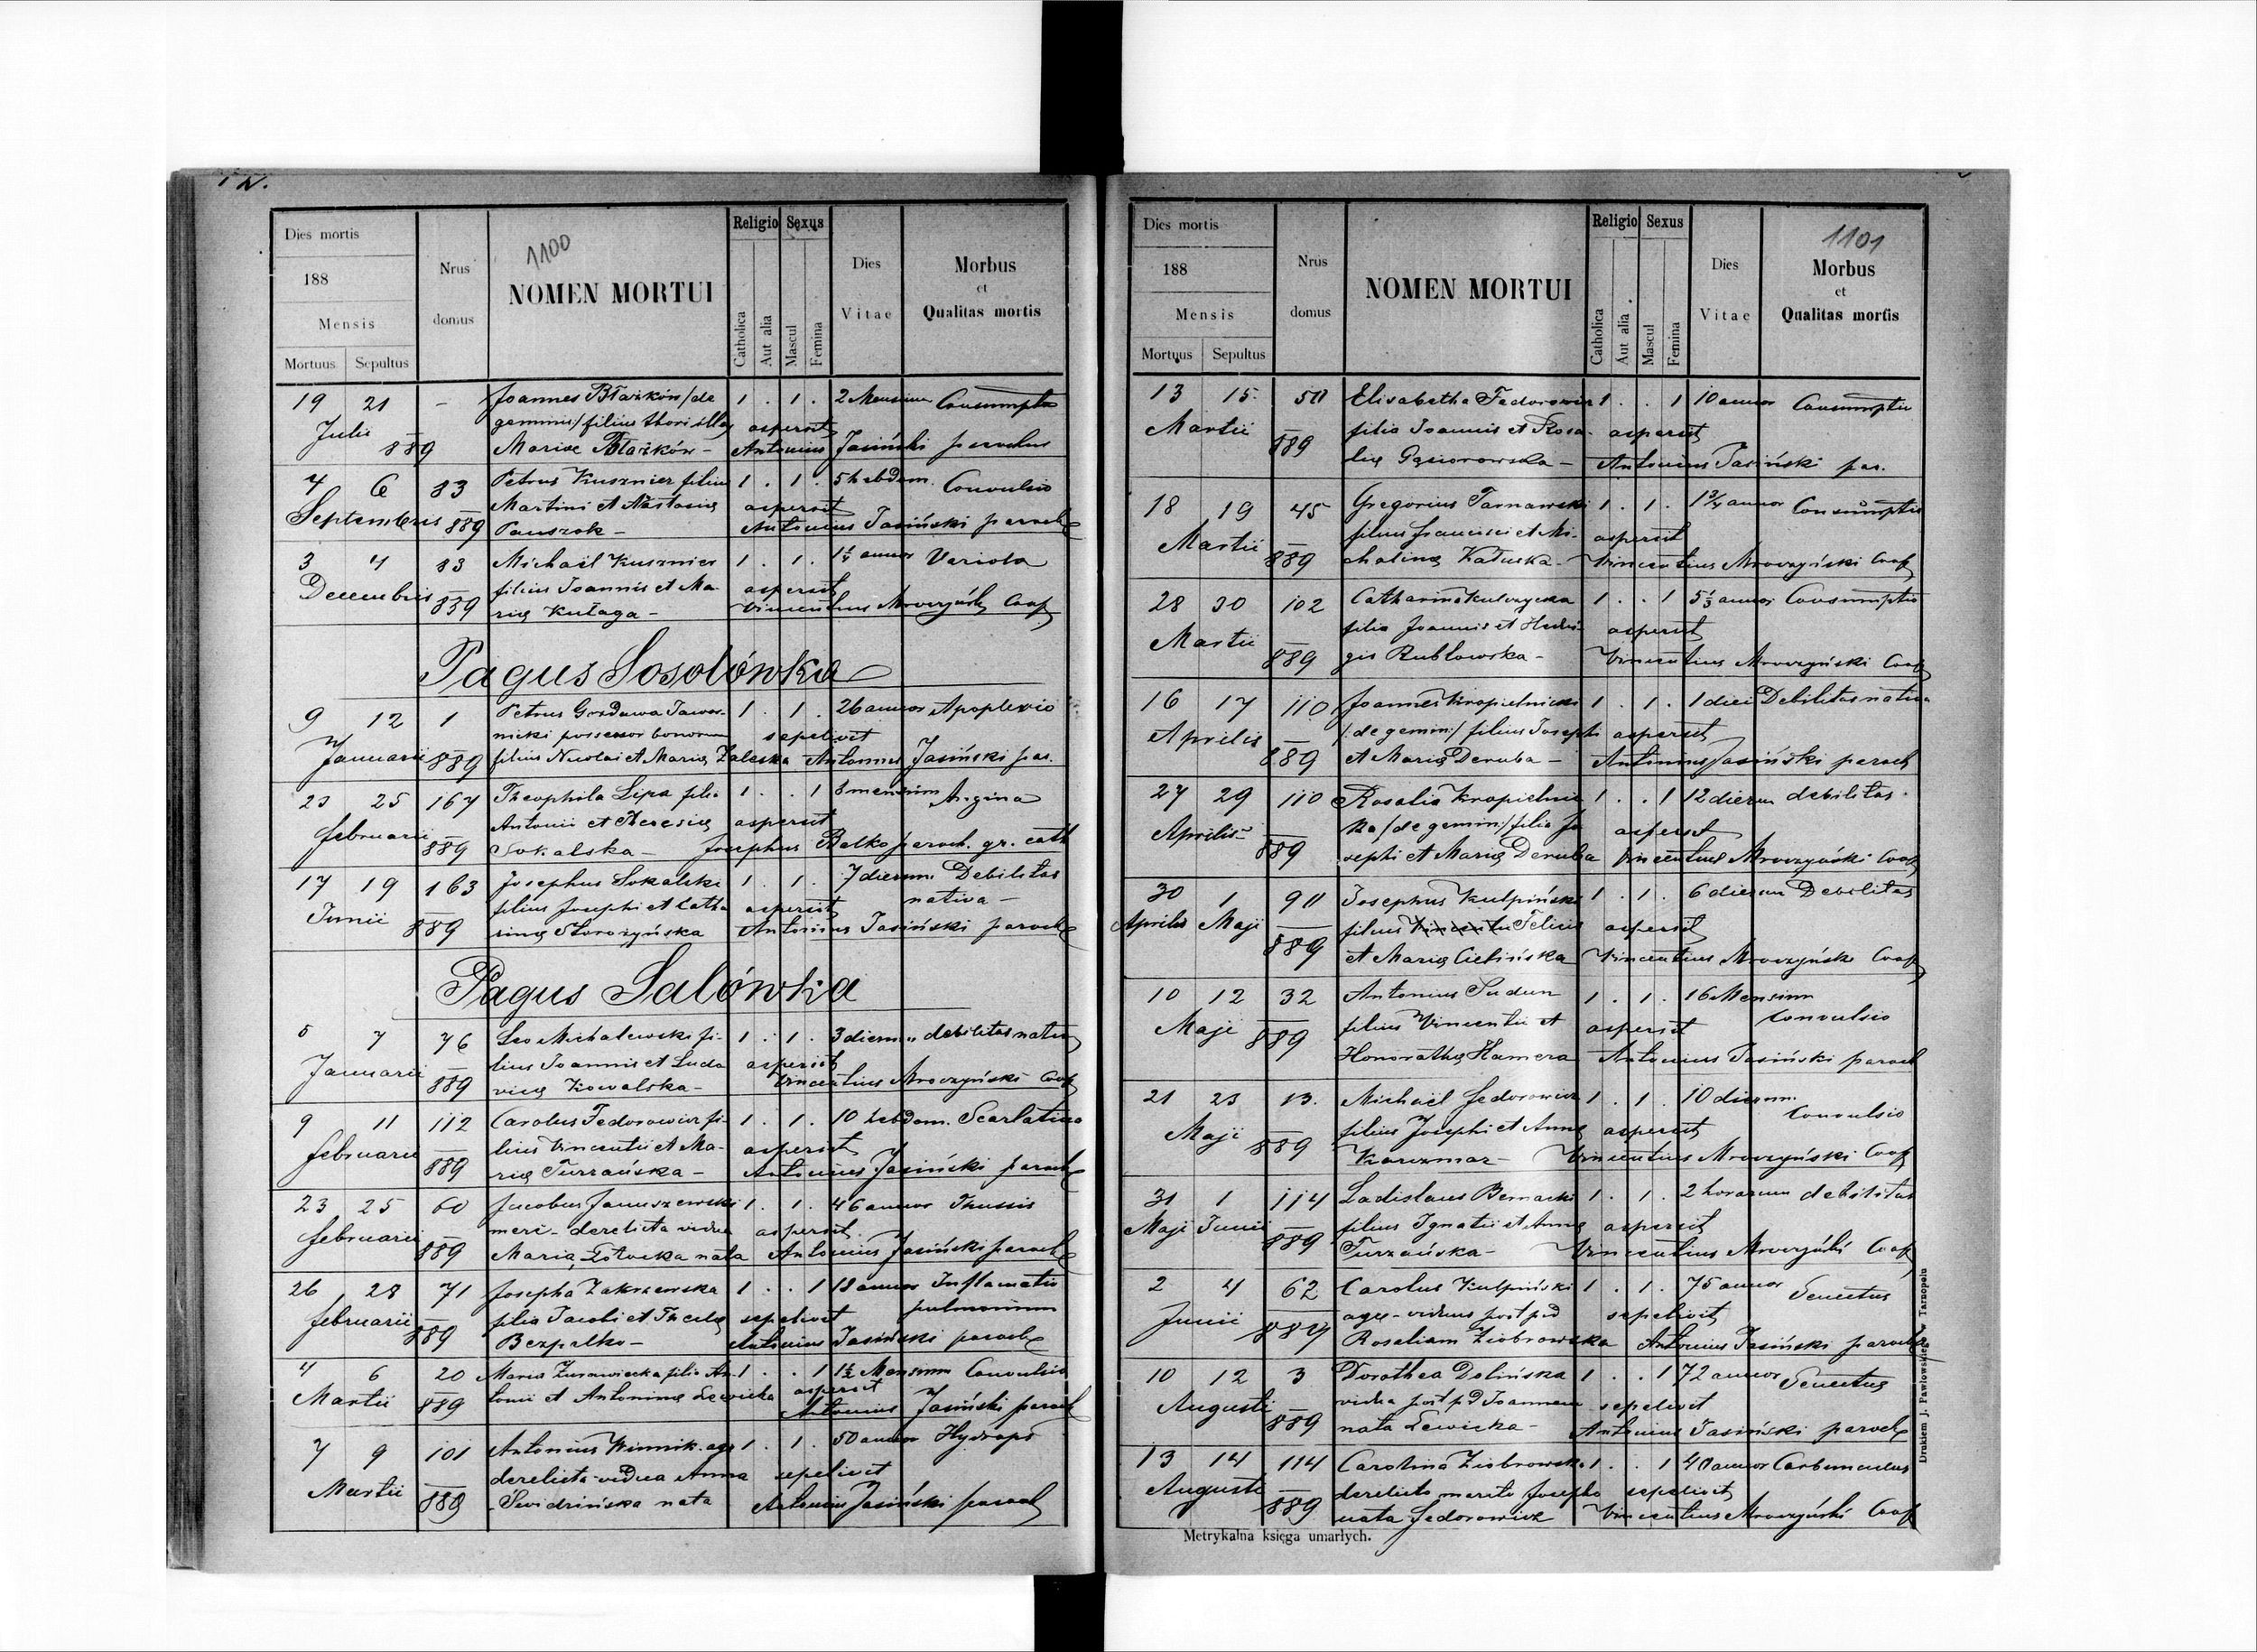 Dies mortis
188
Mensis
Mortuus Sepultus
Nrus domus
1100
NOMEN MORTUI
Religio Sexus
Catholica Aut alia Mascul Femina
Dies Vitae
Morbus
et
Qualitas mortis
19 21 - Joannes Błażków /de 1 . 1 . 2 Mensium Consumptio
gemmis/ filius thori illeg aspersit
Julii 889 Mariae Błażków - Antonius Jasiński parochus
4 6 83 Petrus Kusznier filius 1 . 1 . 5 hebdom. Convulsio
Martini et Nastasiae aspersit
Septembris 889 Pauszok - Antonius Jasiński paroch
3 4 83 Michaël Kusznier 1 . 1 . 1 1/4 annor Variola
Decembris filius Joannis et Ma- aspersit
889 riae Kułaga - Vincentius Mroczyński Coop
Pagus Sosolówka
9 12 1 Petrus Gordawa Jawor- 1 . 1 . 26 annor Apoplexio
nicki possessor bonorum sepelivit
Januarii 889 filius Nicolai et Mariae Zaleska Antonius Jasiński par.
23 25 167 Theophila Lipa filia 1 . . 1 8 mensium Angina
Antonii et Theresiae aspersit
februarii 889 Sokalska - Josephus Balko paroch. gr. cath
17 19 163 Josephus Sokalski 1 . 1 . 7 dierum Debilitas
filius Josephi et Catha aspersit nativa -
Junii 889 rinae Storożyńska Antonius Jasiński paroch
Pagus Salówka
5 7 76 Leo Michalewski fi- 1 . 1 . 3 dierum debilitas nativa
lius Joannis et Ludo aspersit
Januarii 889 vicae Kowalska - Vincentius Mroczyński Coop
9 11 112 Carolus Fedorowicz fi- 1 . 1 . 10 hebdom. Scarlatina
februarii lius Vincentii et Ma- aspersit
889 riae Turzańska - Antonius Jasiński paroch
23 25 60 Jacobus Januszewski 1 . 1 . 46 annor Thussis
februarii merc. derelicta vidua aspersit
889 Maria nata Antonius Jasiński paroch
26 28 71 Josepha Zakrzewska 1 . . 1 18 annor Inflamatio
februarii filia Jacobi et Theclae sepelivit pulmonum
889 Bezpalko - Antonius Jasiński paroch
4 6 20 Maria Żurawiecka filia An- 1 . . 1 1 1/2 Mensium Convulsio
Martii 889 tonii et Antoninae Lewicka aspersit
Antonius Jasiński paroch
7 9 101 Antonius Winnik. agr 1 . 1 . 50 annor Hydrops
derelicta vidua Anna sepelivit
Martii 889 Świdzińska nata Antonius Jasiński paroch
Dies mortis
188
Mensis
Mortuus Sepultus
Nrus domus
NOMEN MORTUI
Religio Sexus
Catholica Aut alia Mascul Femina
Dies Vitae
1101
Morbus
et
Qualitas mortis
13 15 50 Elisabetha Fedorowicz 1 . . 1 10 annor Consumptio
Martii filia Joannis et Rosa- aspersit
889 liae Gąsiorowska - Antonius Jasiński par.
18 19 45 Gregorius Tarnawski 1 . 1 . 1 3/4 annor Consumptio
Martii filius francisci et Mi- aspersit
889 chalinae Kałuska - Vincentius Mroczyński Coop
28 30 102 Catharina Kulczycka 1 . . 1 5 1/3 annor Consumptio
Martii filia Joannis et Hedwi- aspersit
889 gis Rubłowska - Vincentius Mroczyński Coop
16 17 110 Joannes Kropielnicki 1 . 1 . 1 diei Debilitas nativa
Aprilis /:de gemin:/ filius Josephi aspersit
889 et Mariae Deruba - Antonius Jasiński paroch
27 29 110 Rosalia Kropielnic 1 . . 1 12 dierum debilitas.
Aprilis ka /de gemin:/ filia Jo aspersit
889 sephi et Mariae Deruba Vincentius Mroczyński Coop
30 1 90 Josephus Kulpiński 1 . 1 . 6 dierum Debilitas
Aprilis Maji filius Vincentii Felicis aspersit
889 et Mariae Cielińska Vincentius Mroczyński Coop
10 12 32 Antonius Dudun 1 . 1 . 16 Mensium
Maji filius Vincentii et aspersit Convulsio
889 Honorathae Hamera Antonius Jasiński paroch
21 23 13. Michaël Fedorowicz 1 . 1 . 10 dierum
Maji filius Josephi et Annae aspersit Convulsio
889 Karczmar - Vincentius Mroczyński Coop
31 1 114 Ladislaus Bernacki 1 . 1 . 2 horarum debilitas
Maji Junii filius Ignatii et Annae aspersit
889 Turzańska - Vincentius Mroczyński Coop
2 4 62 Carolus Kulpiński 1 . 1 . 75 annor Senectus
Junii agr. viduus post pd sepelivit
889 Rosaliam Ziobrowska Antonius Jasiński paroch
10 12 3 Dorothea Dolińska 1 . . 1 72 annor Senectus
Augusti vidua post pd Joannem sepelivit
889 nata Lewicka - Antonius Jasiński paroch
13 14 114 Carolina Ziobrowska 1 . . 1 40 annor Carbunculus
Augusti derelicto marito Josepho sepelivit
889 nata Fedorowicz Vincentius Mroczyński Coop
Metrykalna księga umarłych.
Drukiem J. Pawłowskiego w Tarnopolu